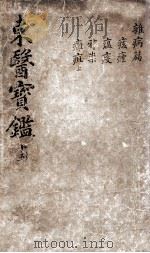 雜病篇
痎瘧
瘟疫
邪祟
癰疽上
東醫寶鑑 十五